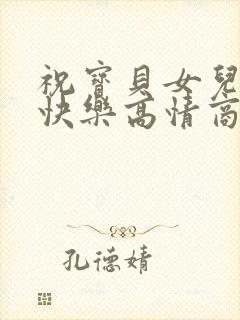 祝寶貝女兒
快樂高情商
孔德婧